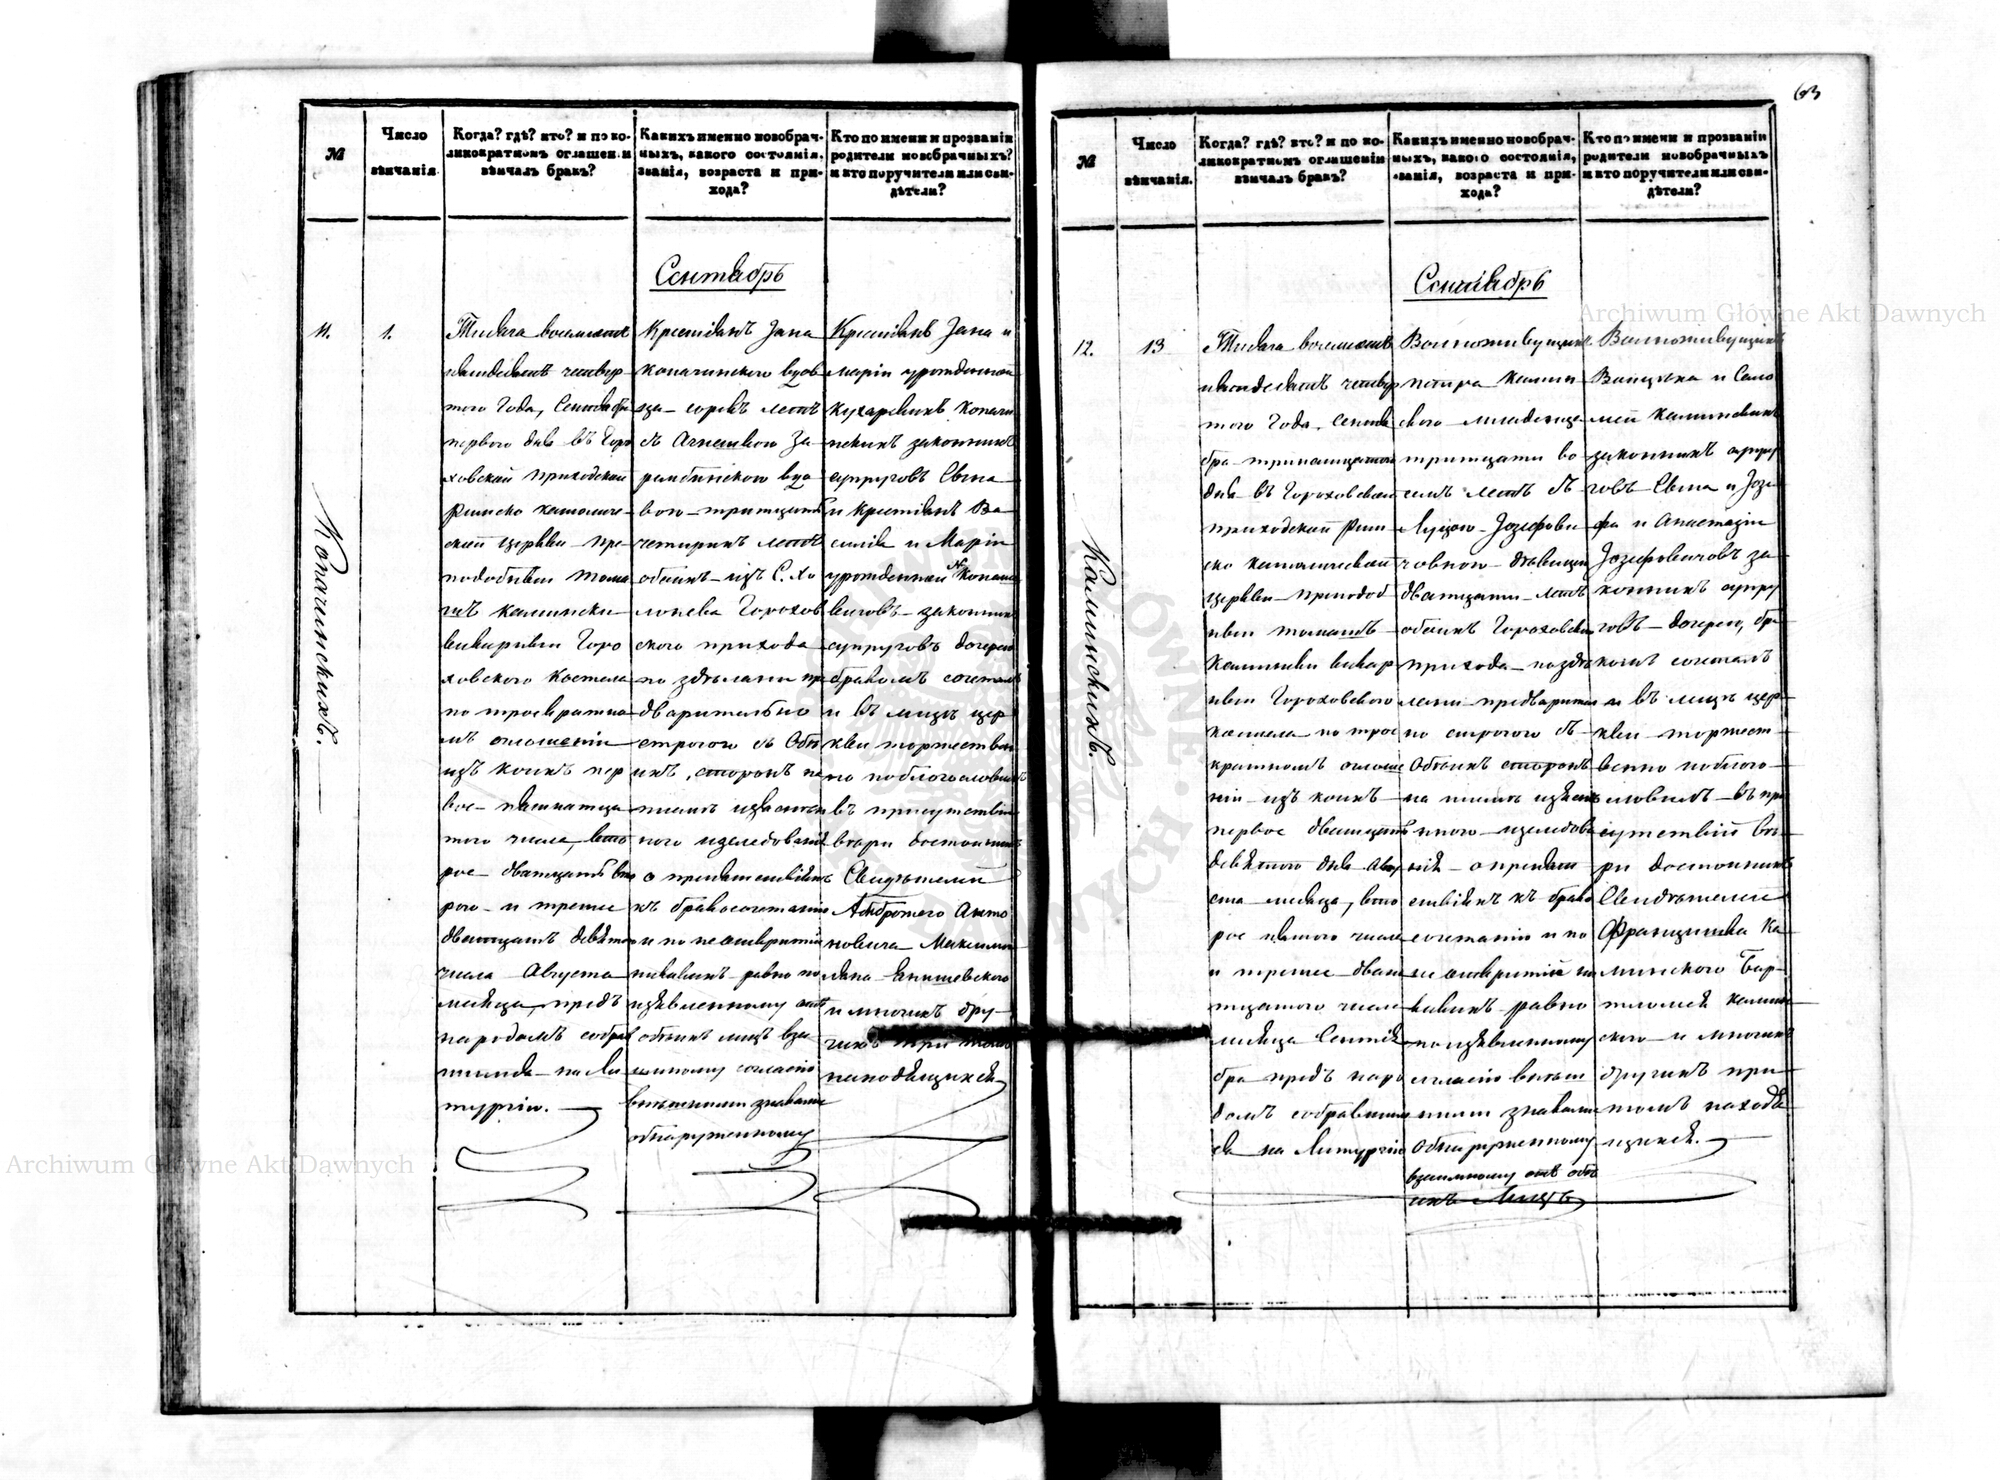 63
№
Число
вѣнчанія
Когда? гдѣ? кто? и по ко-
ликократномъ оглашеніи
вѣнчалъ бракъ?
Какихъ именно новобрач-
ныхъ, какого состоянія,
званія, возраста и при-
хода?
Кто по имени и прозванію
родители новобрачныхъ?
и кто поручители или сви-
дѣтели?
Сентябрь
11.
1.
Копачинскихъ.
Тысяча восемьсотъ
того Года, Сентября
перваго дня въ Горо
ховской приходской
Римско католиче-
ской церкви пре-
подобный Тома
шъ Каминскій
викарный Горо
ховского Костела
по троекратно
мъ оглашеніи
изъ коихъ пер
вое
того числа, вто
рое двадцать вто
рого и третье
двадцать девятого
числа Августа
месяца, предъ
народомъ собрав
шимся на Ли
тургіи.
Крестьянъ Яна
Копачинского вдов
ца сорокъ летъ
съ Агнешкою За
рембинскою вдо
вою тритцать
четирихъ летъ
обоихъ изъ С. Хо
лонева Горохов
ского прихода
по здѣланіи пре
дварительно
строгого съ Обо
ихъ, сторонъ на
писмѣ
ного изследованія
о препятствіяхъ
къ бракосочетанію
и по неоткрытіи
никакихъ равно по
изъявленному отъ
обоихъ лицъ вза
имному согласію
знаками
обнаруженному
Крестьянъ Яна и
Маріи урожденной
Кухарскихъ Копачи
нскихъ законныхъ
супруговъ Сына
и Крестьянъ Ва
силія и Маріи
урожденной N.
законныхъ
супруговъ дочерею
бракомъ сочеталъ
и въ лицѣ цер
кви торжествен
но поблагословилъ
въ присутствіи
вѣри достойныхъ
Свидѣтелей
Анто
новича Максими
ліана Янишевского
и многихъ дру-
гихъ при томъ
находящихся
№
Число
вѣнчанія.
Когда? гдѣ? кто? и по ко
ликократномъ оглашеніи
вѣнчалъ бракъ?
Какихъ именно новобрач-
ныхъ, какого состоянія,
званія, возраста и при-
хода?
Кто по имени и прозванію
родители новобрачныхъ
и кто поручители или сви-
дѣтели?
Сентябрь
12.
13
Каминскихъ.
Тысяча восемьсотъ
того Года, Сентя
бря тринадцатого
дня въ Гороховской
приходской Рим
ско католической
церкви преподоб
ный Томашъ
Каминскій викар
ный Гороховского
костела по трое
кратномъ оглаше
ніи изъ коихъ
первое двадцать
девятого дня Авгу
ста месяца, вто
рое пятого числа
и третье два
тцатого числа
месяца Сентя
бра предъ наро
домъ собравшим
ся на Литургіи
Вольноживущихъ
Петра Камин
ского младенца
тритцати во
семъ летъ съ
Луціею Іозефови
човною девицею
дватцати летъ
обоихъ Гороховского
прихода по здѣ
лани предварител
но строгого съ
Обоихъ сторонъ
на писмѣ
ного изследова
нія о препят
ствіяхъ къ брако
сочетанію и по
не открытіи ни
какихъ равно
по изъявленному
согласію
знаками
Обнаруженному
взаимному отъ обо
ихъ Лицъ
Вольноживущихъ
Войцѣха и Сало
меи Каминскихъ
законныхъ супру
говъ Сына и Іозе
фа и Анастазіи
Іозефовичовъ за
конныхъ супру
говъ дочерею, бра
комъ сочеталъ
и въ лицѣ цер-
кви торжест-
венно поблаго-
словилъ въ при
сутствіи вѣ-
ри достойныхъ
Свидѣтелей
Францишка Ка
минского Бар-
тломея Камин-
ского и многихъ
другихъ при
томъ находя
щихся.
Archiwum Główne Akt Dawnych
Archiwum Główne Akt Dawnych